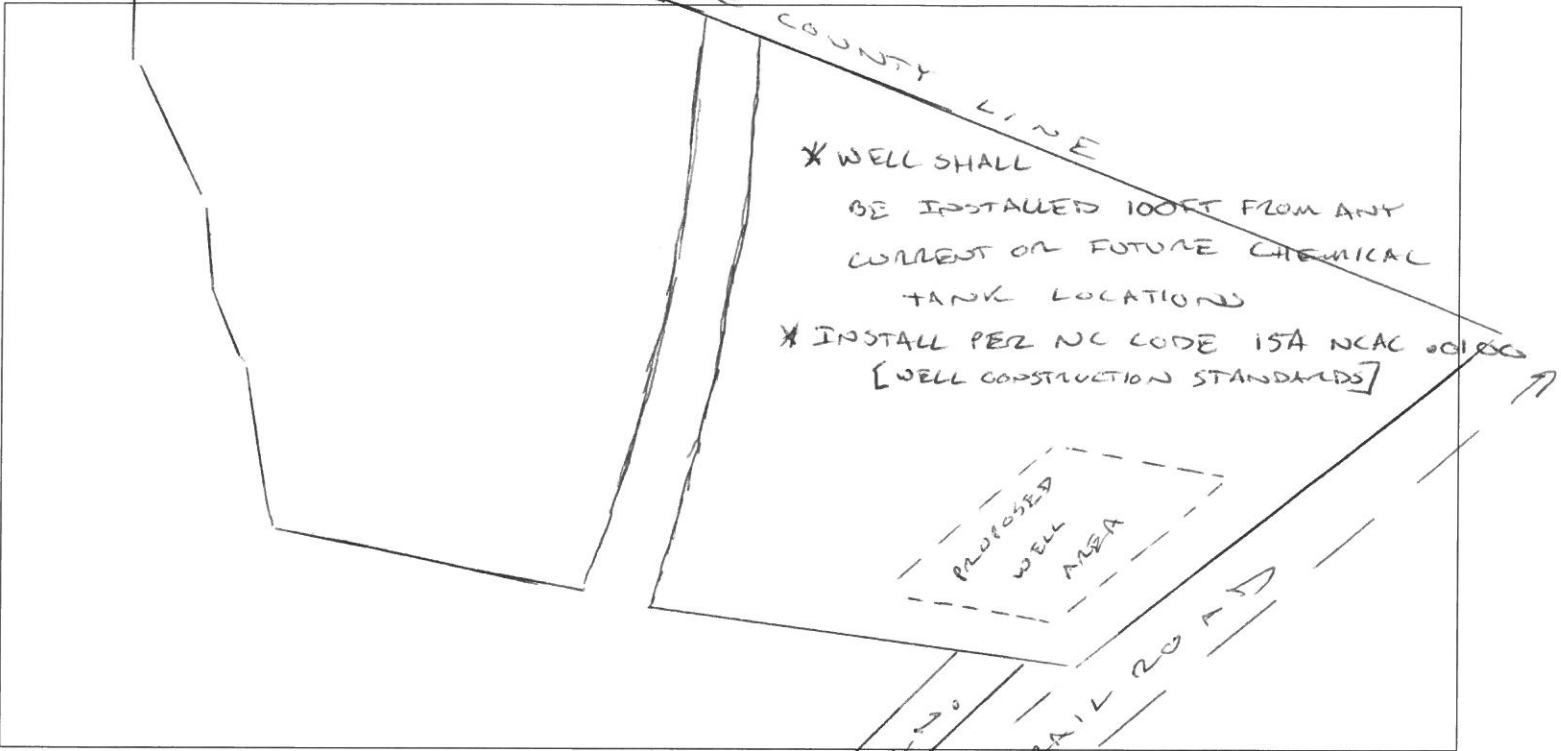 COUNTY LINE
* WELL SHALL
BE INSTALLED 100FT FROM ANY
CURRENT OR FUTURE CHEMICAL
TANK LOCATIONS
* INSTALL PER NC CODE 15A NCAC .00100
[WELL CONSTRUCTION STANDARDS]
PROPOSED
WELL
AREA
RAIL ROAD